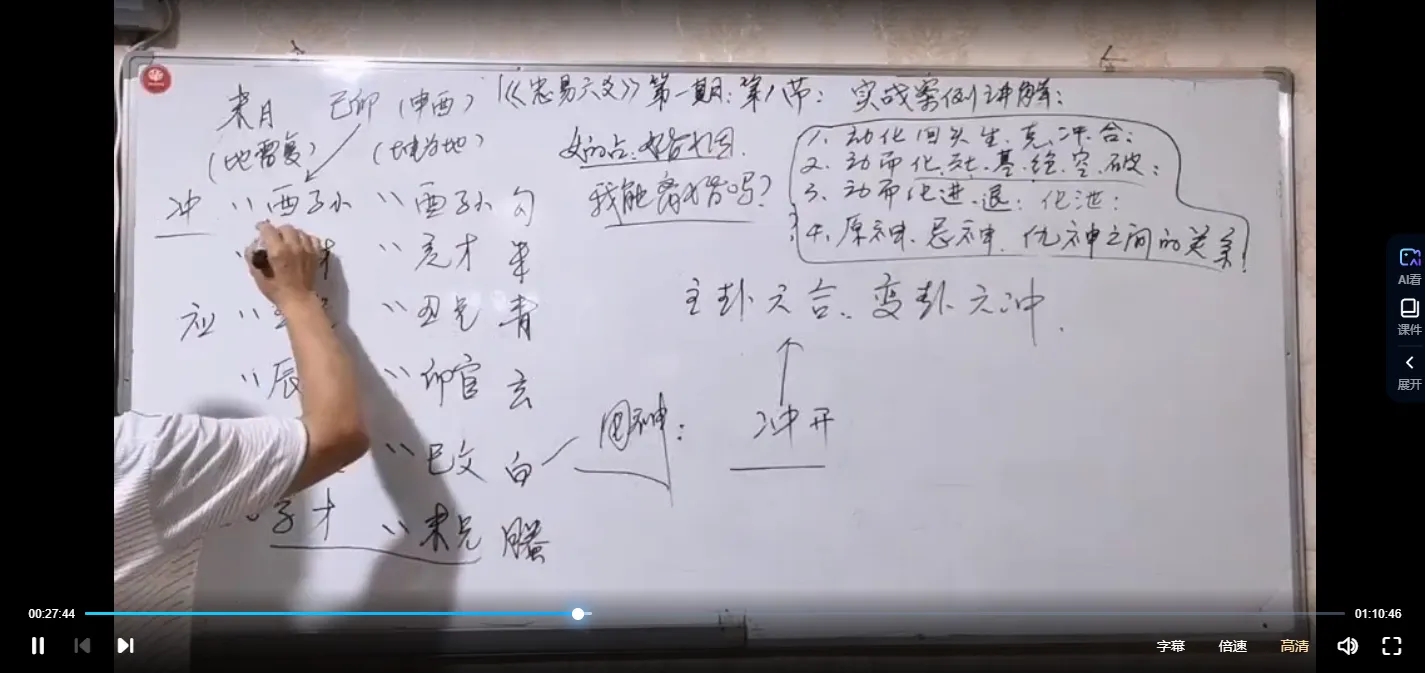 未月 己卯（申酉）
《忠易六爻》第一期：第八节：实战案例讲解：
（地雷复）（坤为地）
女的占：婚姻
我能离婚吗？
1、动化回头生、克、冲、合；
2、动而化、墓、绝、空、破；
3、动而化进、退；化泄；
4、原神、忌神、仇神之间的关系！
冲 〃 酉子小 〃 酉子小 勾
〃 〃 亥才 朱
应 〃 〃 丑兄 青
〃 辰 〃 卯官 玄
〃 巳父 白
子才 〃 未兄 腾
主卦六合、变卦六冲.
用神：
冲开
AI看
课件
展开
00:27:44
01:10:46
字幕 倍速 高清